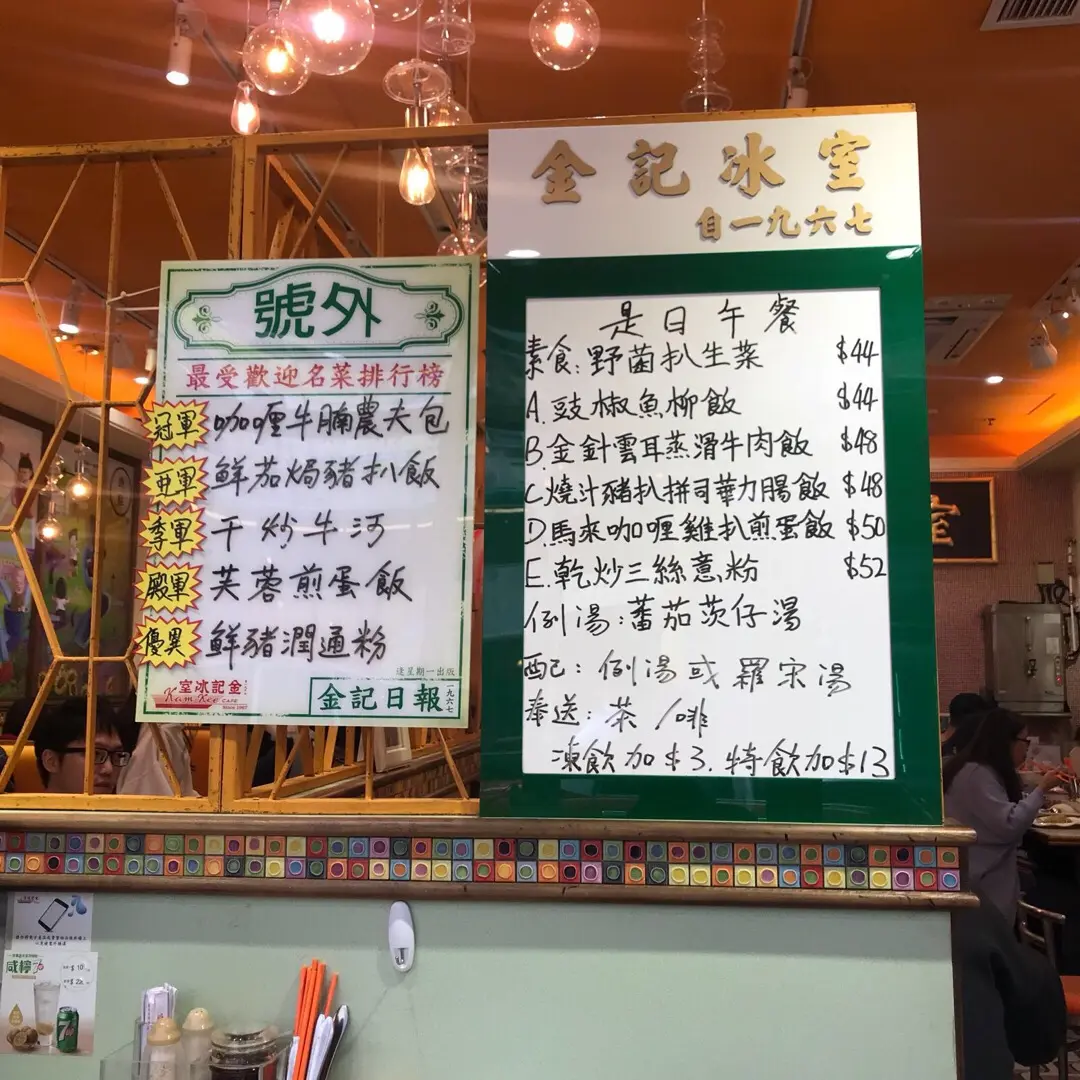 金記冰室
自一九六七
號外
最受歡迎名菜排行榜
冠軍 咖喱牛腩農夫包
亞軍 鮮茄焗豬扒飯
季軍 干炒牛河
殿軍 芙蓉煎蛋飯
優異 鮮豬潤通粉
逢星期一出版
金記冰室
Kam Kee CAFE
Since 1967
金記日報 一九六七
是日午餐
素食:野菌扒生菜 $44
A.豉椒魚柳飯 $44
B.金針雲耳蒸滑牛肉飯 $48
C.燒汁豬扒拼司華力腸飯 $48
D.馬來咖喱雞扒煎蛋飯 $50
E.乾炒三絲薏粉 $52
例湯:蕃茄茨仔湯
配:例湯或羅宋湯
奉送:茶/啡
凍飲加$3.特飲加$13
室
咸檸7
$10
$22
7